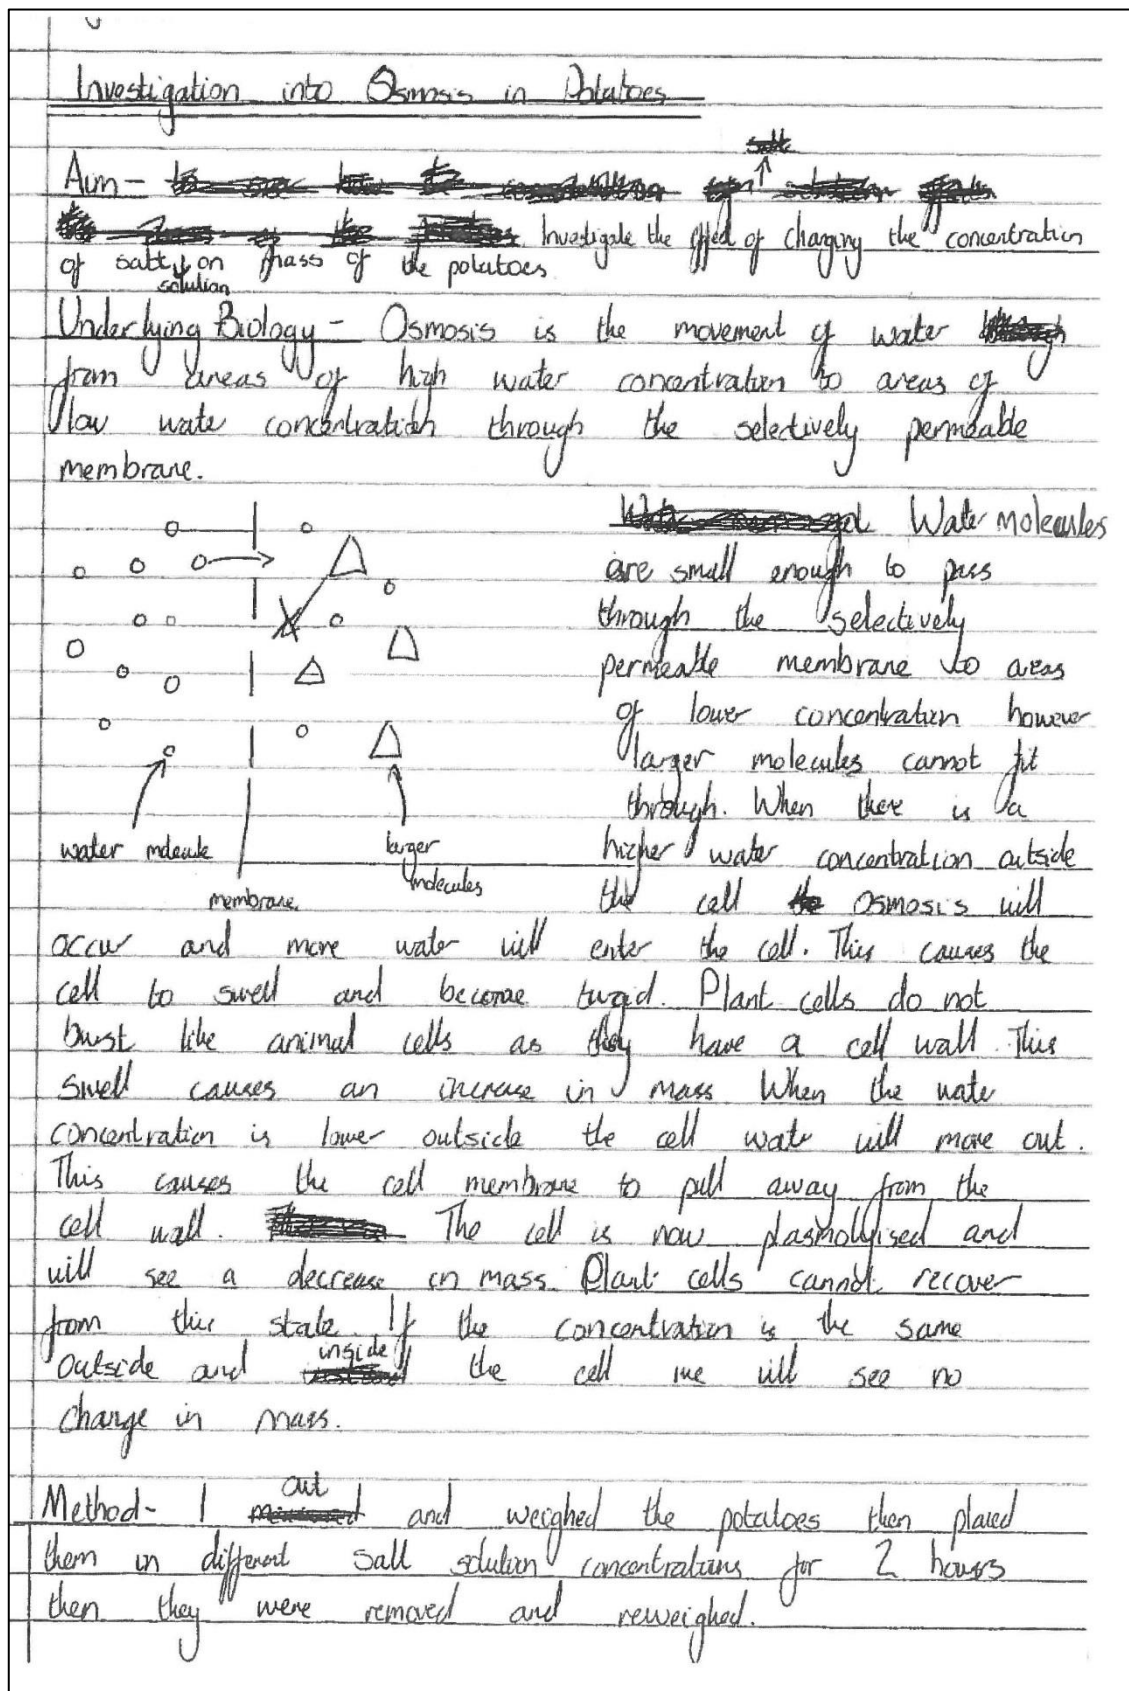 Investigation into Osmosis in Potatoes
salt
Aim - to see how the concentration of solution affects
the mass of the potatoes. Investigate the effect of changing the concentration
of salt on mass of the potatoes
solution
Underlying Biology - Osmosis is the movement of water through
from areas of high water concentration to areas of
low water concentration through the selectively permeable
membrane.
Water molecules
are small enough to pass
through the selectively
permeable membrane to areas
of lower concentration however
larger molecules cannot fit
through. When there is a
water molecule
larger
molecules
membrane
higher water concentration outside
the cell the osmosis will
occur and more water will enter the cell. This causes the
cell to swell and become turgid. Plant cells do not
burst like animal cells as they have a cell wall. This
swell causes an increase in mass. When the water
concentration is lower outside the cell water will move out.
This causes the cell membrane to pull away from the
cell wall. The cell is now plasmolyised and
will see a decrease in mass. Plant cells cannot recover
from this state. If the concentration is the same
inside
outside and the cell we will see no
change in mass.
cut
Method - I measured and weighed the potatoes then placed
them in different salt solution concentrations for 2 hours
then they were removed and reweighed.